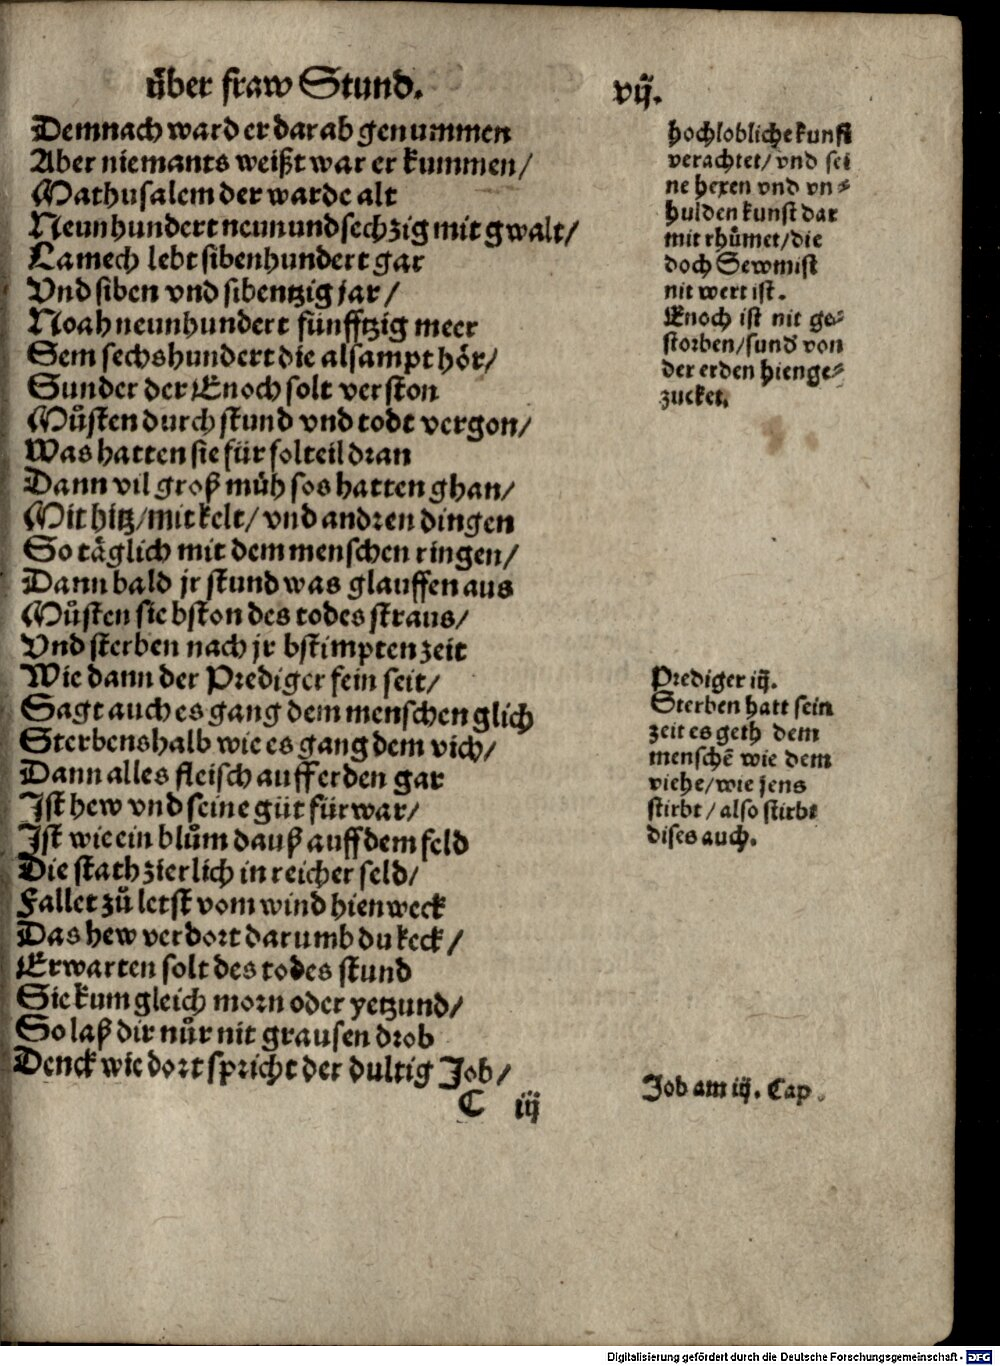 über fraw Stund.
vij.
Demnach ward er darab genummen
Aber niemants weißt war er kummen/
Mathusalem der warde alt
Neunhundert neunundsechzig mit gwalt/
Lamech lebt sibenhundert gar
Vnd siben vnd sibentzig jar/
Noah neunhundert fünfftzig meer
Sem sechshundert die alsampt hör/
Sunder der Enoch solt verston
Müsten durch stund vnd todt vergon/
Was hatten sie für folteil dran
Dann vil groß müh sos hatten ghan/
Mit hitz/mit kelt/ vnd andren dingen
So täglich mit dem menschen ringen/
Dann bald jr stund was glauffen aus
Müsten sie bston des todes straus/
Vnd sterben nach jr bstimpten zeit
Wie dann der Prediger fein seit/
Sagt auch es gang dem menschen glich
Sterbenshalb wie es gang dem vich/
Dann alles fleisch auff erden gar
Ist hew vnd seine güt fürwar/
Ist wie ein blům dauß auff dem feld
Die stath zierlich in reicher feld/
Fallet zů letst vom wind hienweck
Das hew verdort darumb du keck/
Erwarten solt des todes stund
Sie kum gleich morn oder yetzund/
So laß dir nůr nit grausen drob
Denck wie dort spricht der dultig Job/
C iij
hochlobliche kunst
verachtet/ vnd sei
ne hexen vnd vn⸗
hulden kunst dar
mit rhůmet/die
doch Sewmist
nit wert ist.
Enoch ist nit ge⸗
storben/sund̕ von
der erden hienge⸗
zucket.
Prediger iij.
Sterben hatt sein
zeit es geth dem
menschē wie dem
viehe/wie jens
stirbt / also stirbt
dises auch.
Job am iij. Cap.
Digitalisierung gefördert durch die Deutsche Forschungsgemeinschaft - DFG